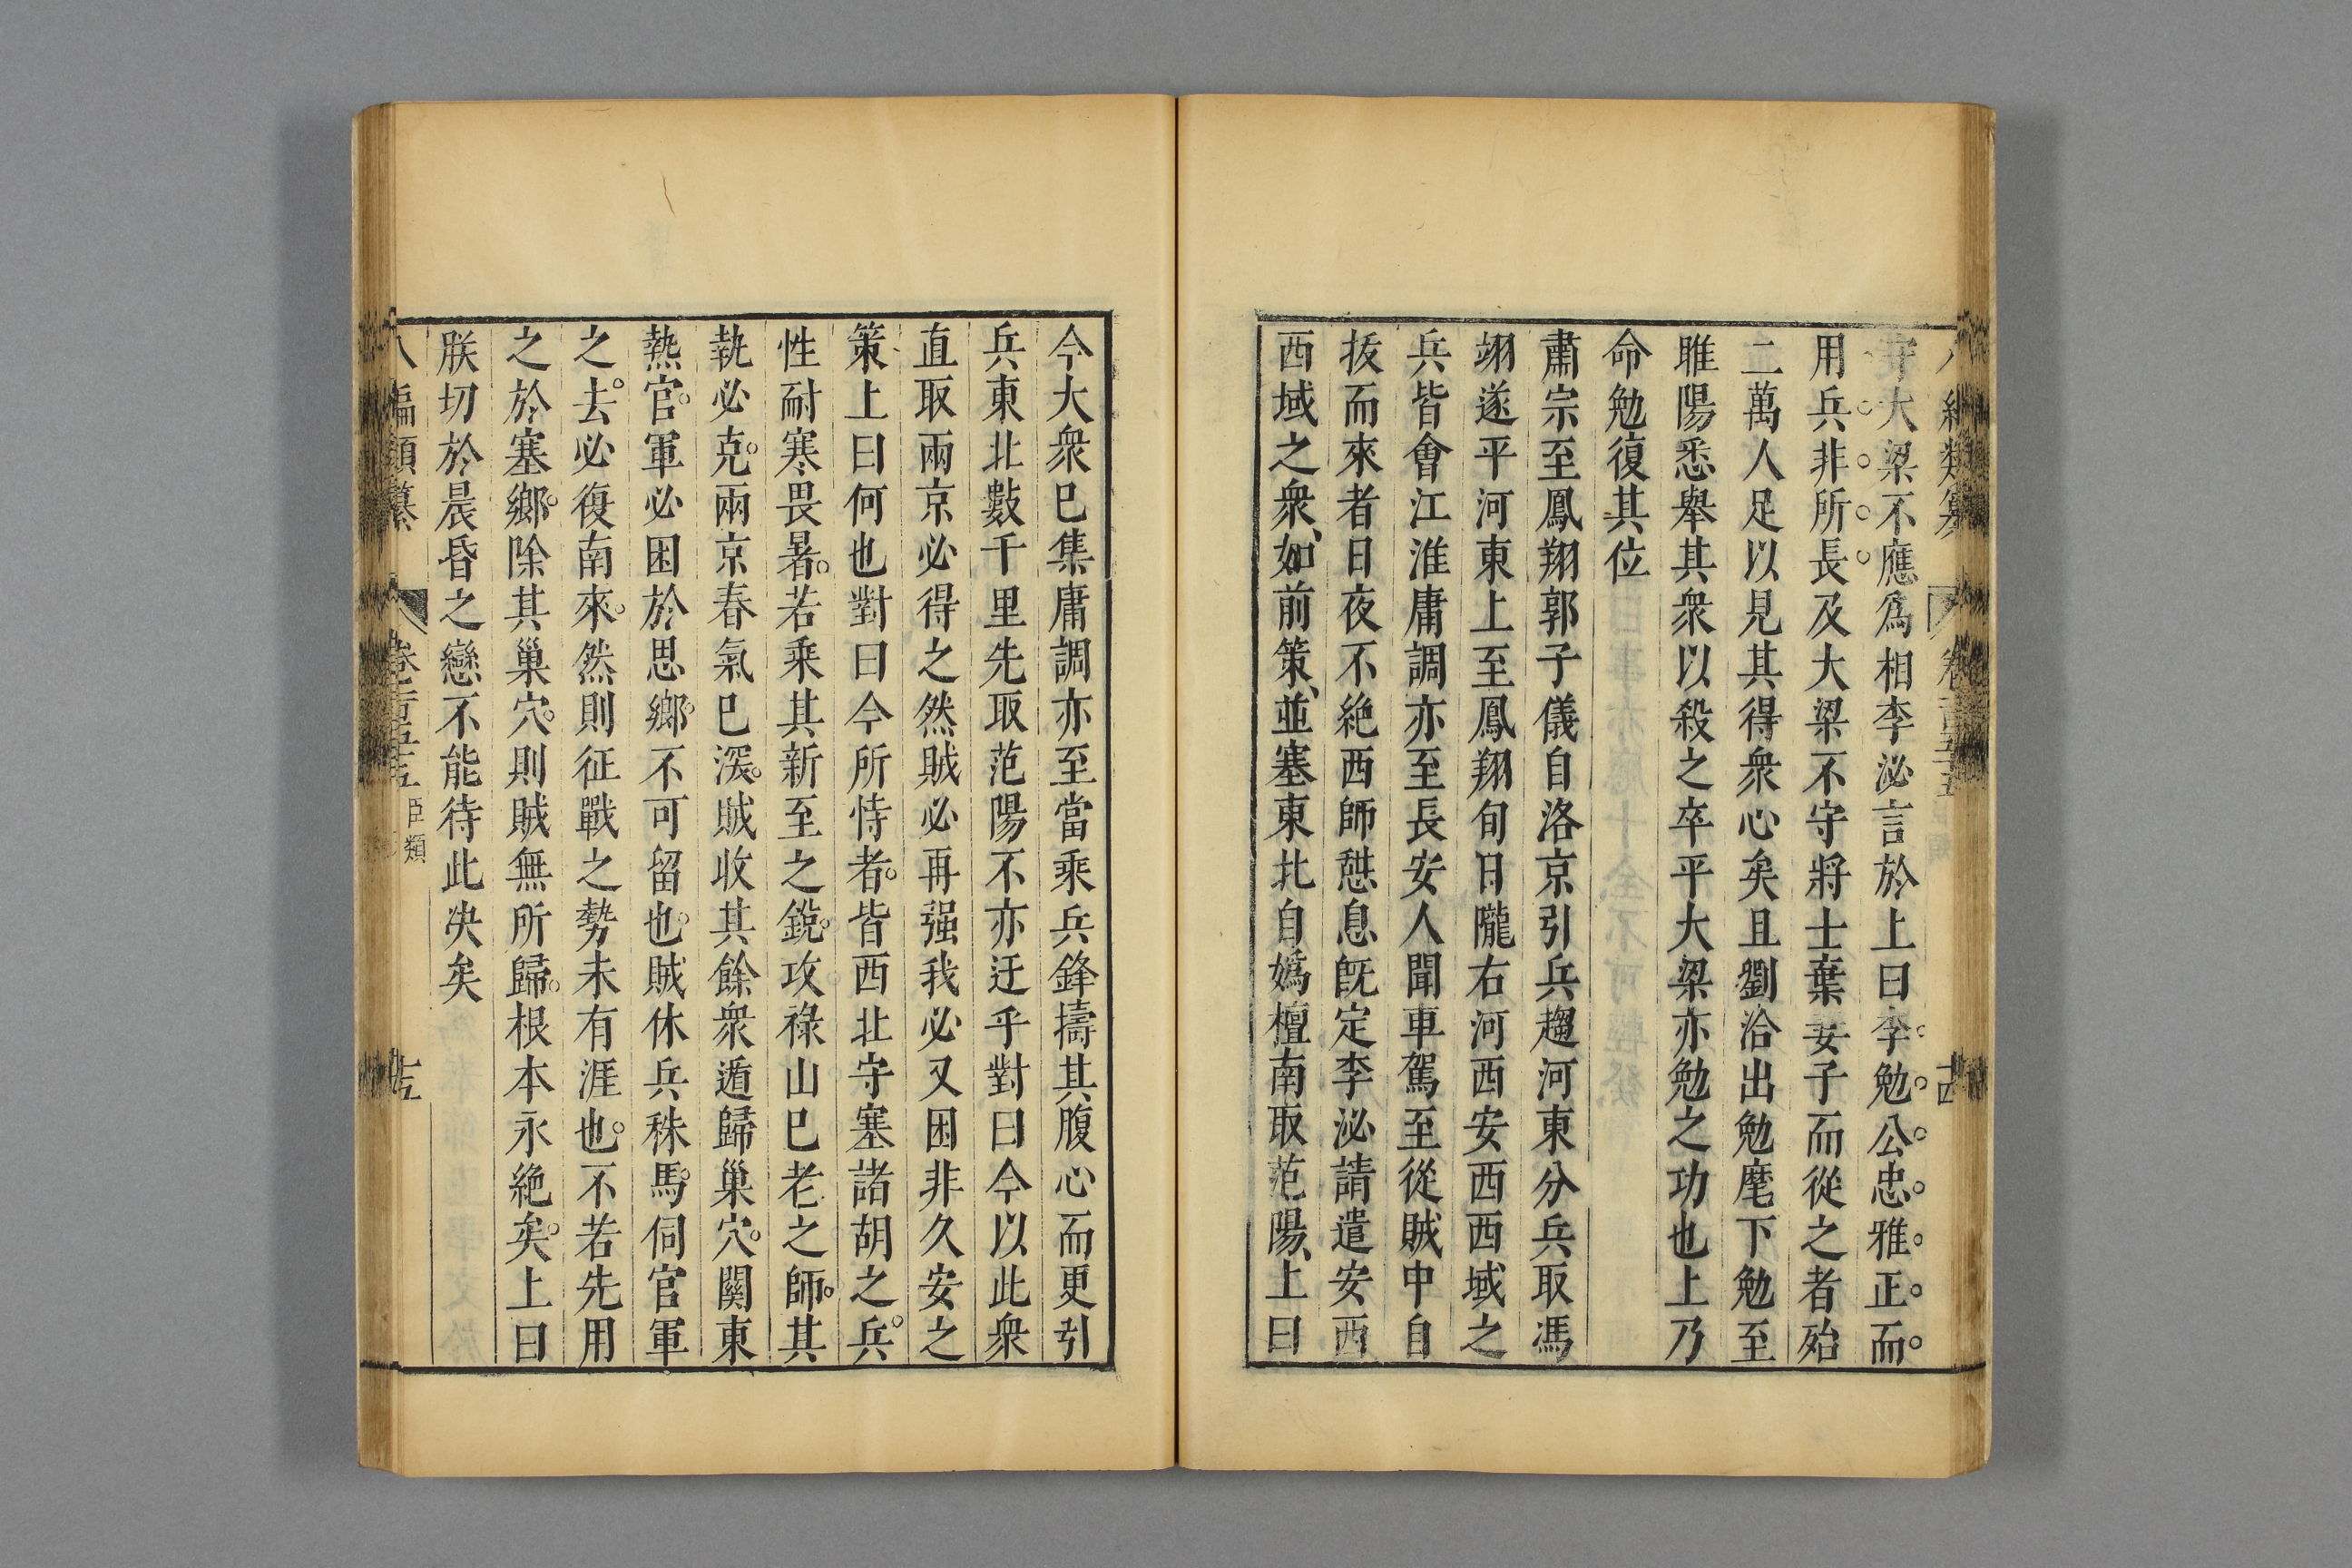 守大梁不應爲相李泌言於上曰李勉公忠雅正而
用兵非所長及大梁不守將士棄妻子而從之者殆
二萬人足以見其得衆心矣且劉洽出勉麾下勉至
睢陽悉舉其衆以殺之卒平大梁亦勉之功也上乃
命勉復其位
肅宗至鳳翔郭子儀自洛京引兵趨河東分兵取馮
翊遂平河東上至鳳翔旬日隴右河西安西西域之
兵皆會江淮庸調亦至長安人聞車駕至從賊中自
拔而來者日夜不絶西師憇息旣定李泌請遣安西
西域之衆、如前策、並塞東北自媯檀南取范陽、上曰
今大衆已集庸調亦至當乘兵鋒擣其腹心而更引
兵東北數千里先取范陽不亦迂乎對曰今以此衆
直取兩京必得之然賊必再强我必又困非久安之
策上曰何也對曰今所恃者皆西北守塞諸胡之兵
性耐寒畏暑若乘其新至之銳攻祿山已老之師其
執必克兩京春氣已深賊收其餘衆遁歸巢穴關東
熱官軍必困於思鄉不可留也賊休兵秣馬伺官軍
之去必復南來然則征戰之勢未有涯也不若先用
之於塞鄉除其巢穴則賊無所歸根本永絶矣上曰
朕切於晨昏之戀不能待此决矣
八編類纂 卷二百五十五 臣類 十五